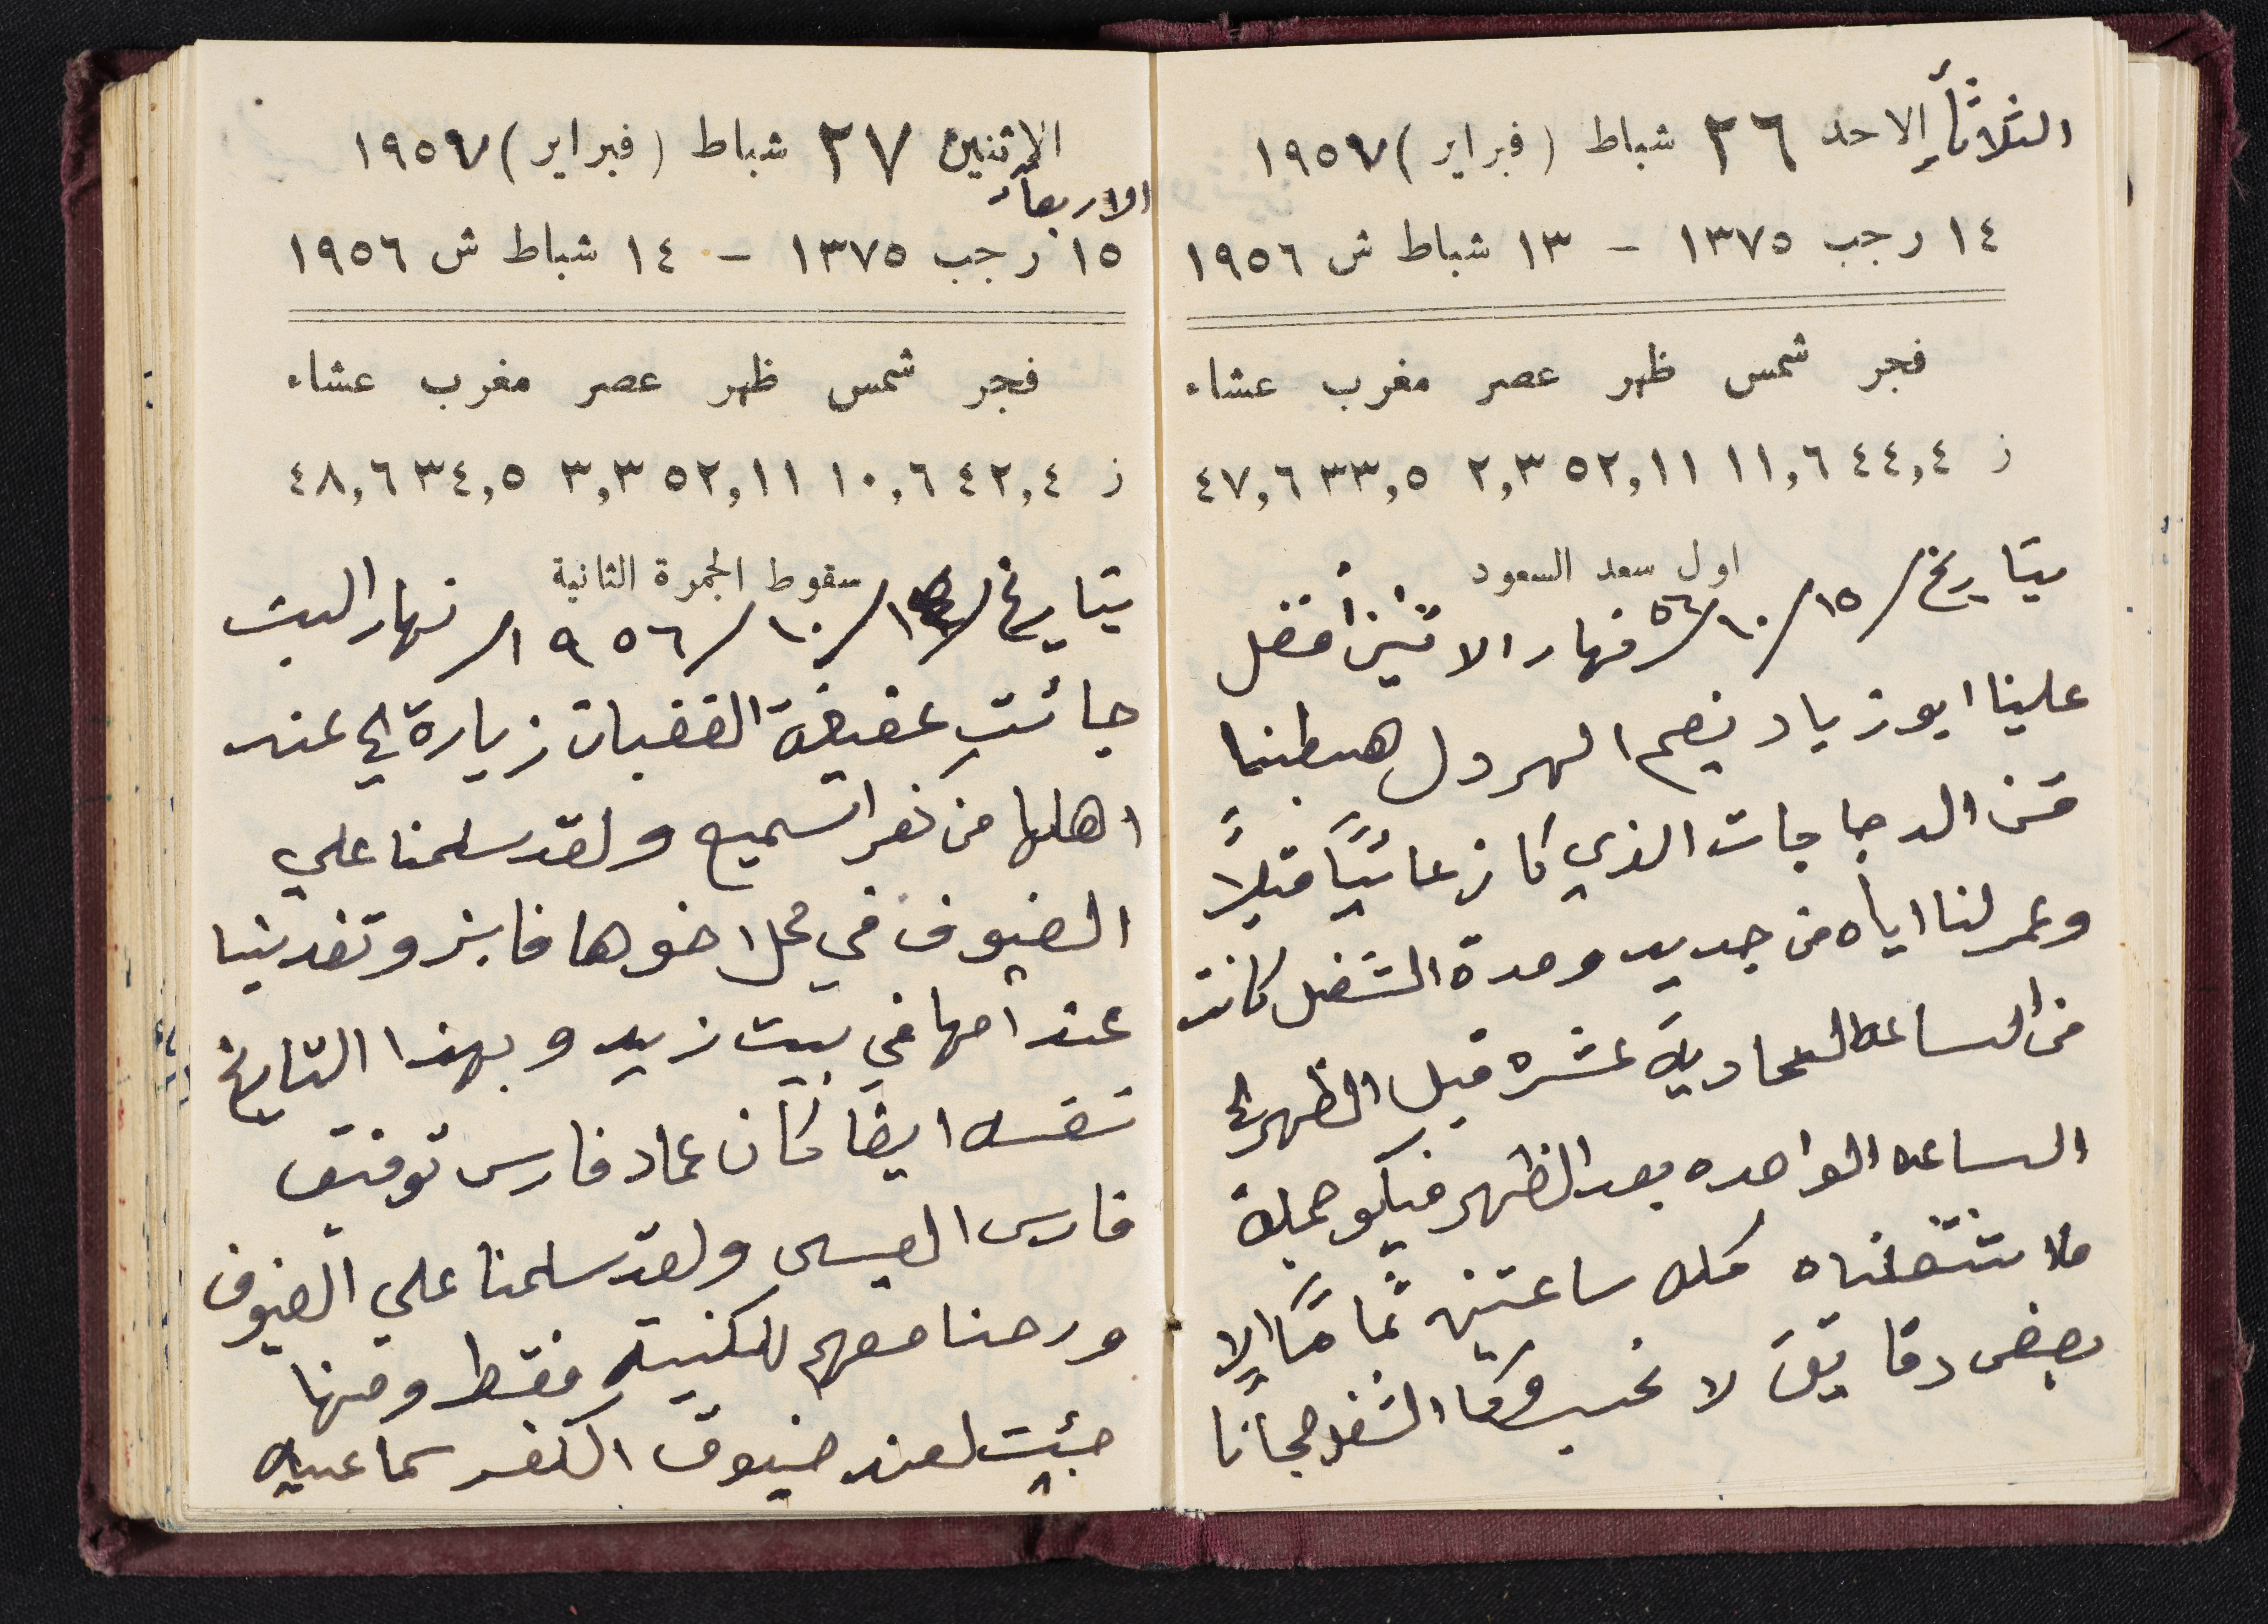 الثلاثاء الاحد ٢٦ شباط (فبراير) ١٩٥٧
١٤ رجب ١٣٧٥ – ١٣ شباط ش ١٩٥٦
فجر شمس ظهر عصر مغرب عشاء
ز ٤٤,٤ ١١,٦ ٥٢,١١ ٢,٣ ٣٣,٥ ٤٧,٦
اول سعد السعود
بتاريخ/١٥/١٠/٥٦ نهار الاثنين أقبل
علينا ابو زياد نعيم الهردل هبطنا
قن الدجاجات الذي كان عاتيًا قبلاً
وعمر لنا اياه من جديد ومدة الشغل كانت
من الساعه الحادية عشره قبل الظهر الى
الساعه الواحده بعد الظهر فيكو جملة
ما شتغلناه كله ساعتين تمامًا إلا
بعض دقايق لا نحسب وكما الشغل مجانا
الاثنين ٢٧ شباط (فبراير) ١٩٥٧
الاربعاء
١٥ رجب ١٣٧٥ – ١٤ شباط ش ١٩٥٦
فجر شمس ظهر عصر مغرب عشاء
ز ٤٢,٤ ١٠,٦ ٥٢,١١ ٣,٣ ٣٤,٥ ٤٨,٦
سقوط الجمرة الثانية
بتاريخ /١٠/١٩٥٦/ نهار السبت
جائت عفيفة القفبان زيارة الى عند
اهلها من كفر سميع ولقد سلمنا علي
الضيوف في محل اخوها فايز وتغدينا
عند امها في بيت زيد وبهذا التاريخ
نفسه ايضًا كان عماد فارس توفيق
فارس العيسى ولقد سلمنا علي الضيوف
ورحنا معهم للكنيسه فقط ومنها
جئت لعند ضيوف الكفر سماعيه